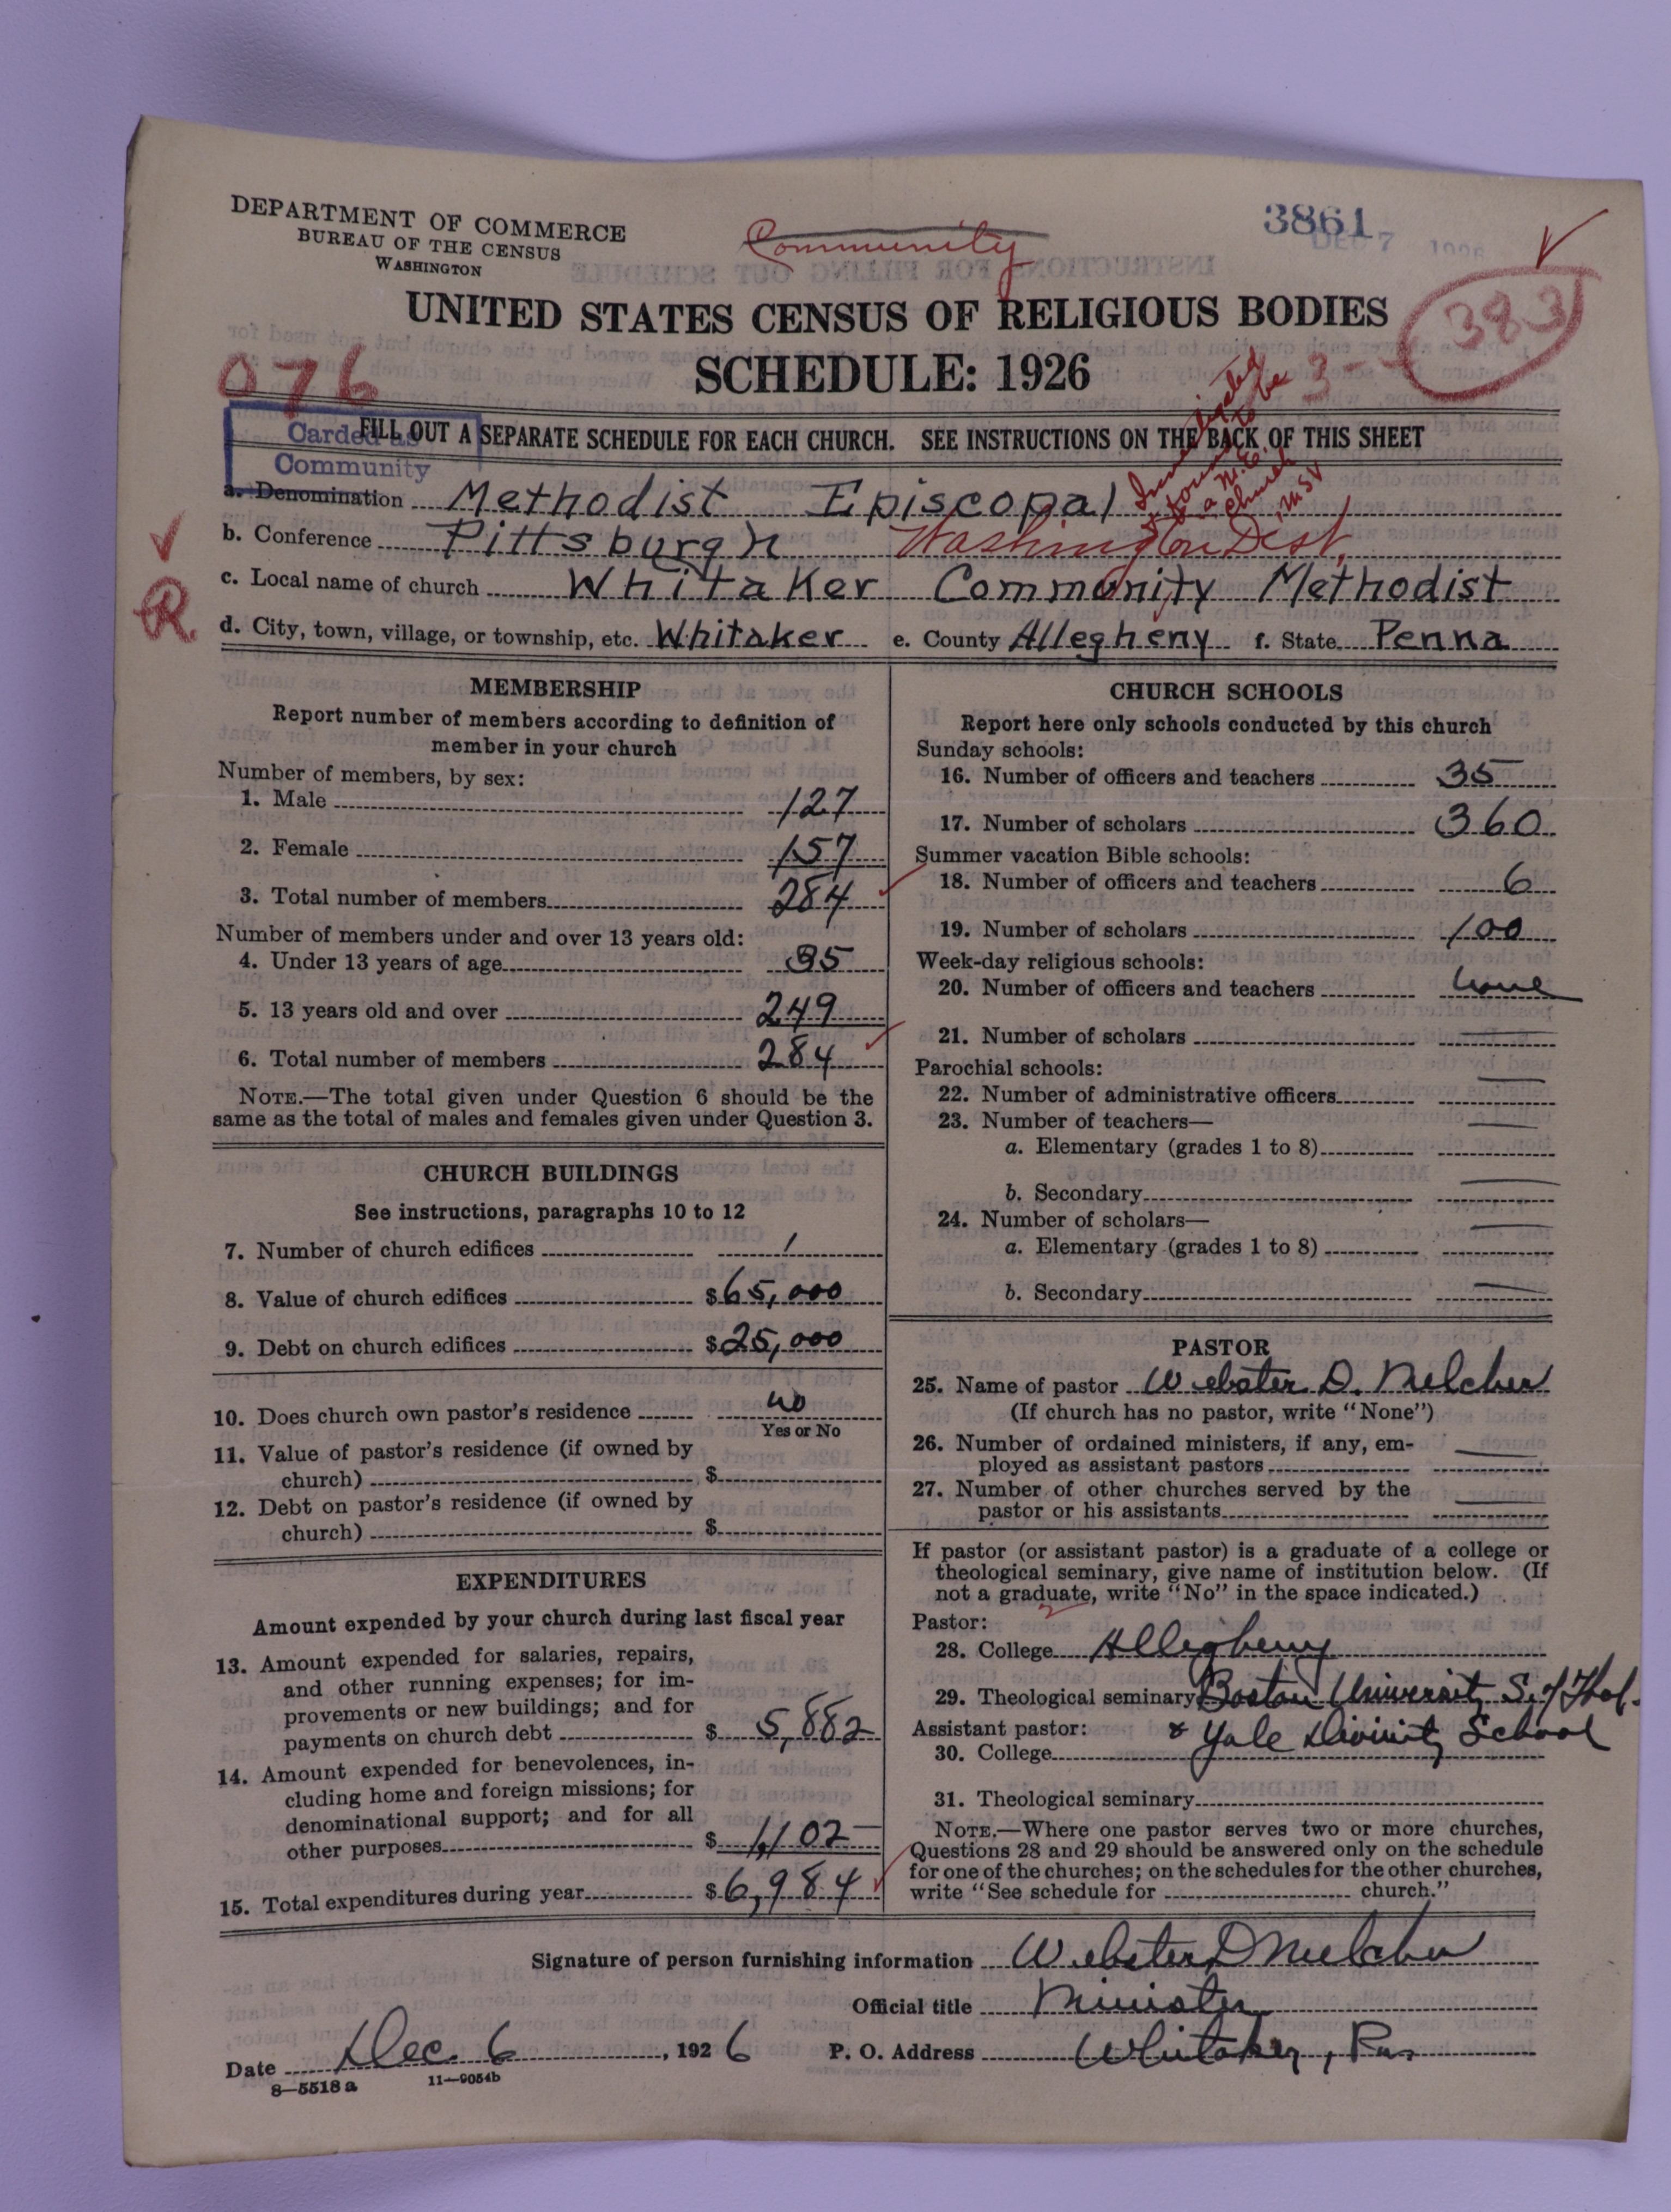 DEPARTMENT OF COMMERCE
BUREAU OF THE CENSUS
WASHINGTON
Community
3861
DEC 7 1926
UNITED STATES CENSUS OF RELIGIOUS BODIES
SCHEDULE: 1926
383
3-
076
Carded as
Community
FILL OUT A SEPARATE SCHEDULE FOR EACH CHURCH. SEE INSTRUCTIONS ON THE BACK OF THIS SHEET
Investigated
& found to be
a M.E.
Church
a. Denomination Methodist Episcopal
b. Conference Pittsburgh Washington Dist.
R
c. Local name of church Whitaker Community Methodist
d. City, town, village, or township, etc. Whitaker e. County Allegheny f. State Penna
MEMBERSHIP
Report number of members according to definition of
member in your church
Number of members, by sex:
1. Male 127
2. Female 157
3. Total number of members 284
Number of members under and over 13 years old:
4. Under 13 years of age 35
5. 13 years old and over 249
6. Total number of members 284
NOTE.—The total given under Question 6 should be the
same as the total of males and females given under Question 3.
CHURCH BUILDINGS
See instructions, paragraphs 10 to 12
7. Number of church edifices 1
8. Value of church edifices $65,000
9. Debt on church edifices $25,000
10. Does church own pastor's residence no
Yes or No
11. Value of pastor's residence (if owned by
church) $
12. Debt on pastor's residence (if owned by
church) $
EXPENDITURES
Amount expended by your church during last fiscal year
13. Amount expended for salaries, repairs,
and other running expenses; for im-
provements or new buildings; and for
payments on church debt $ 5,882
14. Amount expended for benevolences, in-
cluding home and foreign missions; for
denominational support; and for all
other purposes $ 1,102
15. Total expenditures during year $6,984
CHURCH SCHOOLS
Report here only schools conducted by this church
Sunday schools:
16. Number of officers and teachers 35
17. Number of scholars 360
Summer vacation Bible schools:
18. Number of officers and teachers 6
19. Number of scholars 100
Week-day religious schools:
20. Number of officers and teachers none
21. Number of scholars —
Parochial schools:
22. Number of administrative officers —
23. Number of teachers—
a. Elementary (grades 1 to 8) —
b. Secondary —
24. Number of scholars—
a. Elementary (grades 1 to 8) —
b. Secondary —
PASTOR
25. Name of pastor Webster D. Melcher
(If church has no pastor, write "None")
26. Number of ordained ministers, if any, em-
ployed as assistant pastors —
27. Number of other churches served by the
pastor or his assistants —
If pastor (or assistant pastor) is a graduate of a college or
theological seminary, give name of institution below. (If
not a graduate, write "No" in the space indicated.)
Pastor:
28. College Allegheny
29. Theological seminary Boston University S. of Theol.
Assistant pastor: & Yale Divinity School
30. College
31. Theological seminary
NOTE.—Where one pastor serves two or more churches,
Questions 28 and 29 should be answered only on the schedule
for one of the churches; on the schedules for the other churches,
write "See schedule for church."
Signature of person furnishing information Webster D Melcher
Official title Minister
Date Dec. 6, 1926 P. O. Address Whitaker, Pa.
8—5518 a 11—9054b